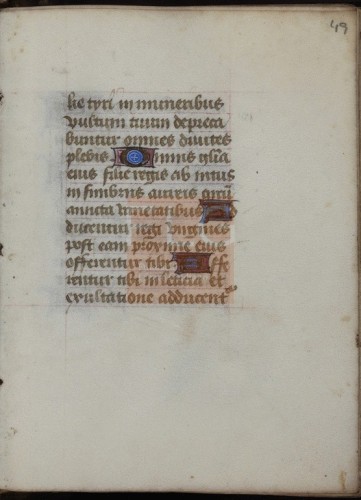 49
lie tyri in muneribus
vultum tuum depreca
buntur omnes divites
plebis Omnis gl'ia
eius filie regis ab intus
in fimbriis aureis circū
amicta varietatibus A
ducentur regi virgines
post eam proxime eius
offerentur tibi Affe
rentur tibi in leticia et
exultatione adducent'